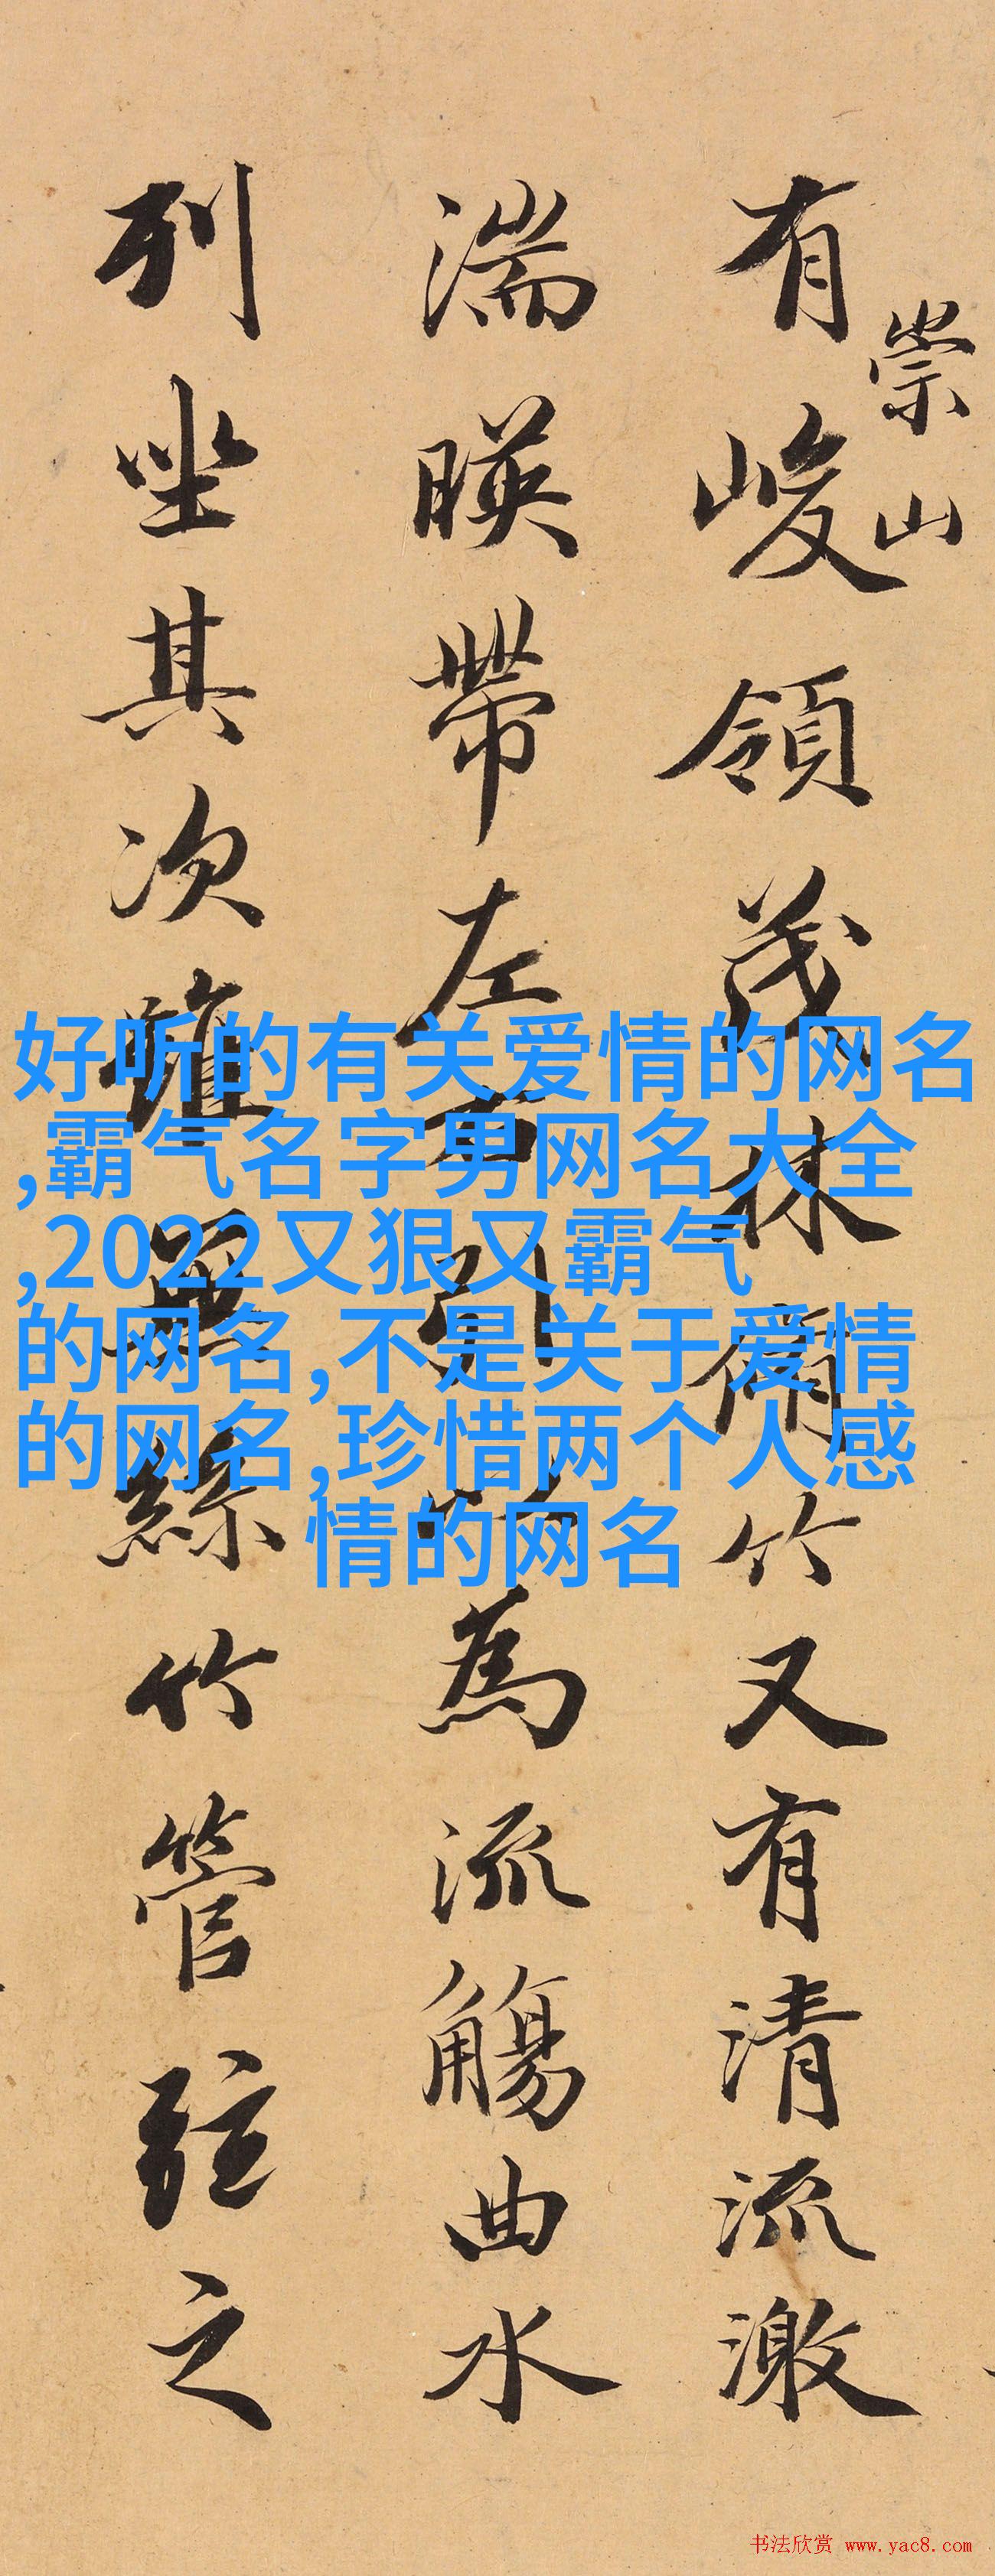 崇山
有峻領茂林脩竹又有清流激
湍暎帶左右引以為流觴曲水
列坐其次雖無絲竹管弦之
好听的有关爱情的网名
,霸气名字男网名大全
,2022又狠又霸气
的网名,不是关于爱情
的网名,珍惜两个人感
情的网名
书法欣赏 www.yac8.com